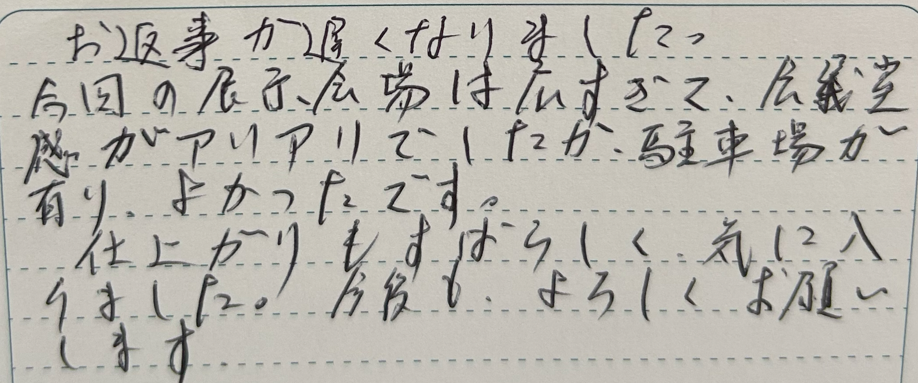 お返事が遅くなりました。
今回の展示会場は広すぎて、会議堂
感がアリアリでしたが、駐車場が
有り、よかったです。
仕上がりもすばらしく、気に入
りました。今後も、よろしくお願い
します。